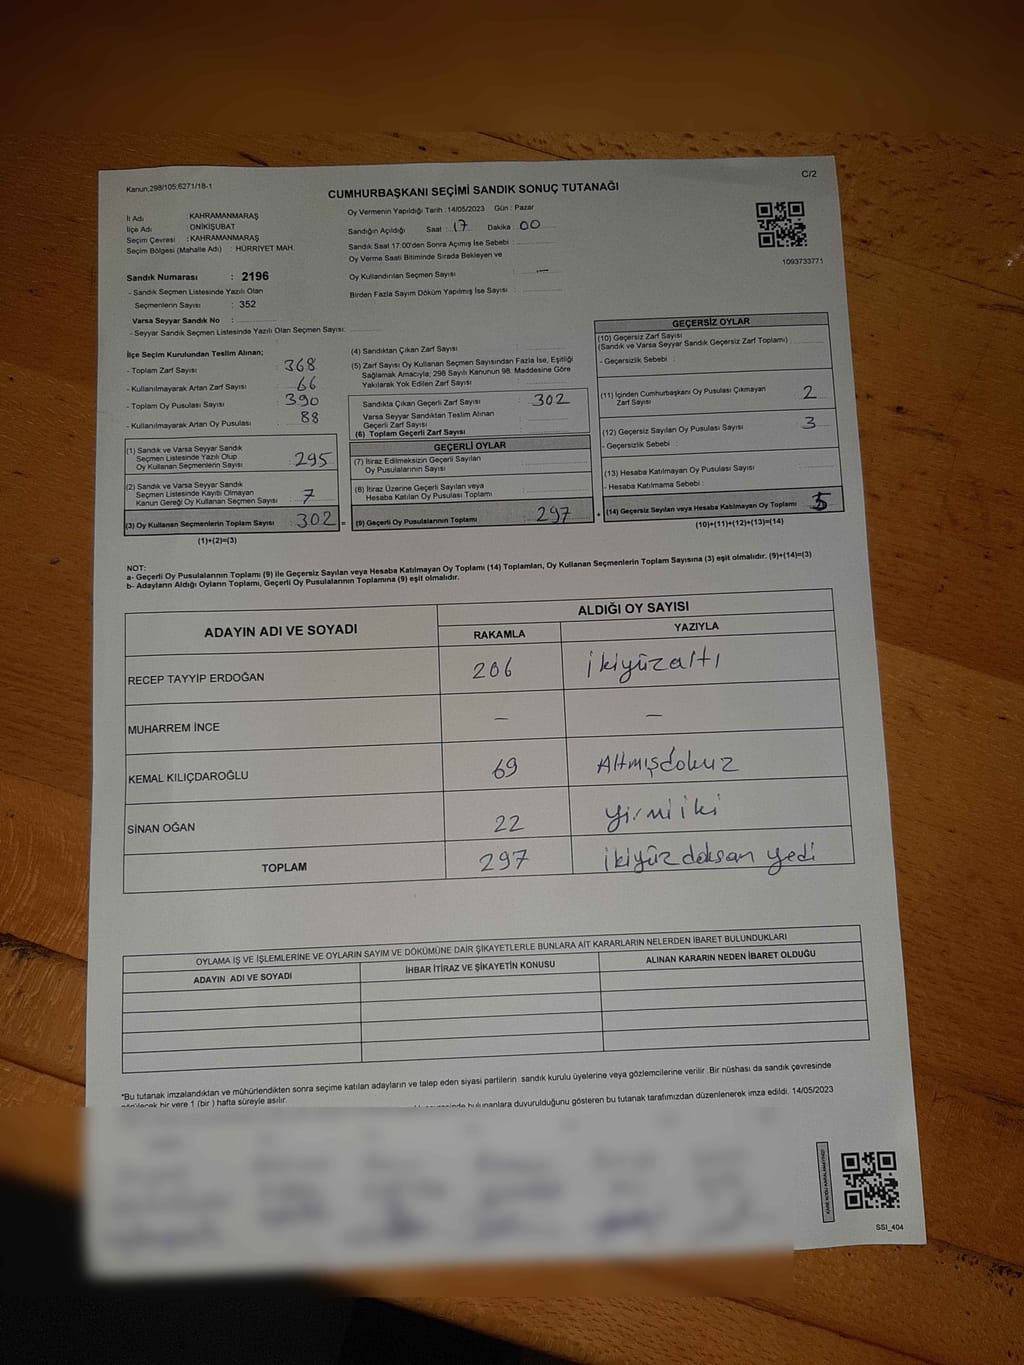 Kanun:298/105;6271/18-1
C/2
CUMHURBAŞKANI SEÇİMİ SANDIK SONUÇ TUTANAĞI
İl Adı : KAHRAMANMARAŞ
İlçe Adı : ONİKİŞUBAT
Seçim Çevresi : KAHRAMANMARAŞ
Seçim Bölgesi (Mahalle Adı) : HÜRRİYET MAH.
Oy Vermenin Yapıldığı Tarih : 14/05/2023 Gün : Pazar
Sandığın Açıldığı Saat : 17 Dakika : 00
Sandık Saat 17:00'den Sonra Açımış İse Sebebi :
Oy Verme Saati Bitiminde Sırada Bekleyen ve
Oy Kullandırılan Seçmen Sayısı : —
Birden Fazla Sayım Döküm Yapılmış İse Sayısı :
1093733771
Sandık Numarası : 2196
- Sandık Seçmen Listesinde Yazılı Olan
Seçmenlerin Sayısı : 352
Varsa Seyyar Sandık No :
- Seyyar Sandık Seçmen Listesinde Yazılı Olan Seçmen Sayısı:
İlçe Seçim Kurulundan Teslim Alınan;
- Toplam Zarf Sayısı : 368
- Kullanılmayarak Artan Zarf Sayısı : 66
- Toplam Oy Pusulası Sayısı : 390
- Kullanılmayarak Artan Oy Pusulası : 88
(1) Sandık ve Varsa Seyyar Sandık
Seçmen Listesinde Yazılı Olup
Oy Kullanan Seçmenlerin Sayısı : 295
(2) Sandık ve Varsa Seyyar Sandık
Seçmen Listesinde Kayıtlı Olmayan
Kanun Gereği Oy Kullanan Seçmen Sayısı : 7
(3) Oy Kullanan Seçmenlerin Toplam Sayısı : 302 =
(1)+(2)=(3)
(4) Sandıktan Çıkan Zarf Sayısı :
(5) Zarf Sayısı Oy Kullanan Seçmen Sayısından Fazla İse, Eşitliği
Sağlamak Amacıyla; 298 Sayılı Kanunun 98. Maddesine Göre
Yakılarak Yok Edilen Zarf Sayısı :
Sandıkta Çıkan Geçerli Zarf Sayısı : 302
Varsa Seyyar Sandıktan Teslim Alınan
Geçerli Zarf Sayısı :
(6) Toplam Geçerli Zarf Sayısı :
GEÇERLİ OYLAR
(7) İtiraz Edilmeksizin Geçerli Sayılan
Oy Pusulalarının Sayısı :
(8) İtiraz Üzerine Geçerli Sayılan veya
Hesaba Katılan Oy Pusulası Toplamı :
(9) Geçerli Oy Pusulalarının Toplamı : 297 +
GEÇERSİZ OYLAR
(10) Geçersiz Zarf Sayısı
(Sandık ve Varsa Seyyar Sandık Geçersiz Zarf Toplamı)
- Geçersizlik Sebebi :
(11) İçinden Cumhurbaşkanı Oy Pusulası Çıkmayan
Zarf Sayısı : 2
(12) Geçersiz Sayılan Oy Pusulası Sayısı : 3
- Geçersizlik Sebebi :
(13) Hesaba Katılmayan Oy Pusulası Sayısı :
- Hesaba Katılmama Sebebi :
(14) Geçersiz Sayılan veya Hesaba Katılmayan Oy Toplamı : 5
(10)+(11)+(12)+(13)=(14)
NOT:
a- Geçerli Oy Pusulalarının Toplamı (9) ile Geçersiz Sayılan veya Hesaba Katılmayan Oy Toplamı (14) Toplamları, Oy Kullanan Seçmenlerin Toplam Sayısına (3) eşit olmalıdır. (9)+(14)=(3)
b- Adayların Aldığı Oyların Toplamı, Geçerli Oy Pusulalarının Toplamına (9) eşit olmalıdır.
ADAYIN ADI VE SOYADI
ALDIĞI OY SAYISI
RAKAMLA YAZIYLA
RECEP TAYYİP ERDOĞAN 206 ikiyüzaltı
MUHARREM İNCE — —
KEMAL KILIÇDAROĞLU 69 Altmışdokuz
SİNAN OĞAN 22 yirmiiki
TOPLAM 297 ikiyüz doksan yedi
OYLAMA İŞ VE İŞLEMLERİNE VE OYLARIN SAYIM VE DÖKÜMÜNE DAİR ŞİKAYETLERLE BUNLARA AİT KARARLARIN NELERDEN İBARET BULUNDUKLARI
ADAYIN ADI VE SOYADI İHBAR İTİRAZ VE ŞİKAYETİN KONUSU ALINAN KARARIN NEDEN İBARET OLDUĞU
*Bu tutanak imzalandıktan ve mühürlendikten sonra seçime katılan adayların ve talep eden siyasi partilerin sandık kurulu üyelerine veya gözlemcilerine verilir. Bir nüshası da sandık çevresinde
görülecek bir yere 1 (bir) hafta süreyle asılır.
bulunanlara duyurulduğunu gösteren bu tutanak tarafımızdan düzenlenerek imza edildi. 14/05/2023
SSİ_404